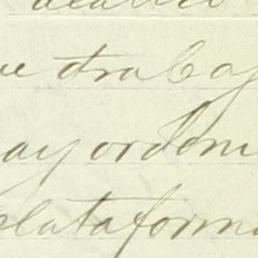 ue trabaj
ayordom
plataform